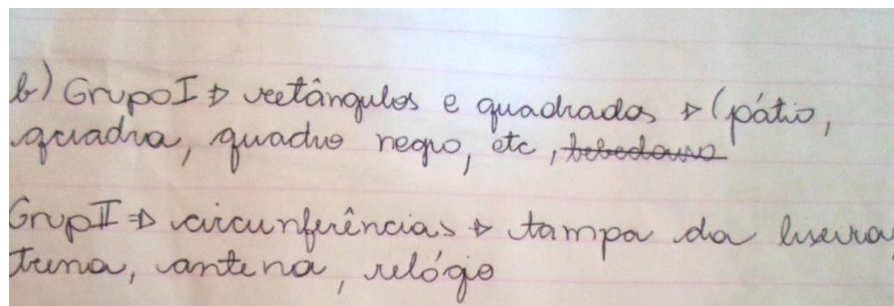 b) Grupo I ⇒ retângulos e quadrados ⇒ (pátio,
quadra, quadro negro, etc, bebedouro
Grup II ⇒ circunferências ⇒ tampa da lixeira,
trena, antena, relógio